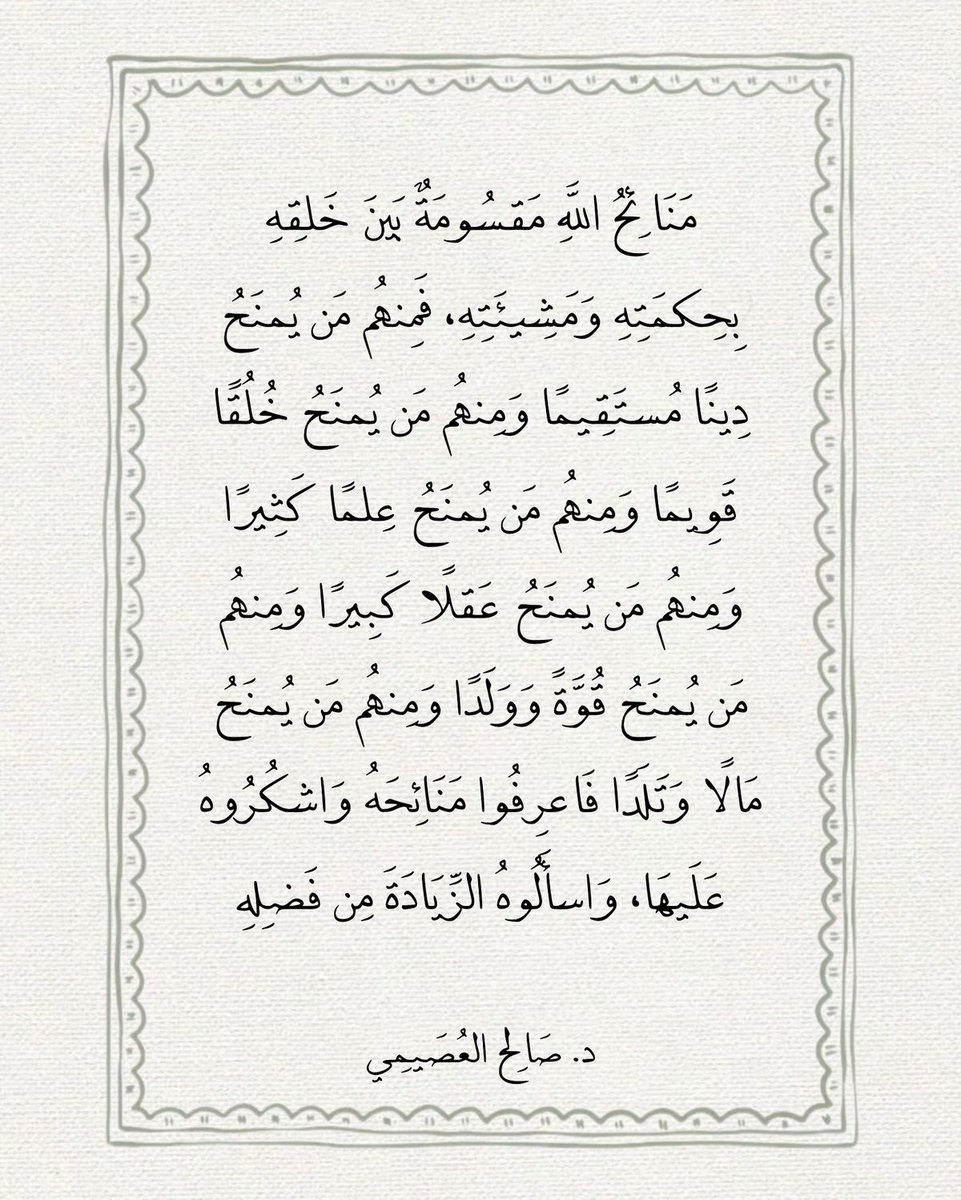 مَنَائِحُ اللَّهِ مَقسُومَةٌ بَينَ خَلقِهِ
بِحِكمَتِهِ وَمَشِيئَتِهِ، فَمِنهُم مَن يُمنَحُ
دِينًا مُستَقِيمًا وَمِنهُم مَن يُمنَحُ خُلُقًا
قَوِيمًا وَمِنهُم مَن يُمنَحُ عِلمًا كَثِيرًا
وَمِنهُم مَن يُمنَحُ عَقلًا كَبِيرًا وَمِنهُم
مَن يُمنَحُ قُوَّةً وَوَلَدًا وَمِنهُم مَن يُمنَحُ
مَالًا وَتَلَدًا فَاعرِفُوا مَنَائِحَهُ وَاشكُرُوهُ
عَلَيهَا، وَاسأَلُوهُ الزِّيَادَةَ مِن فَضلِهِ
د. صَالِح العُصَيمِي